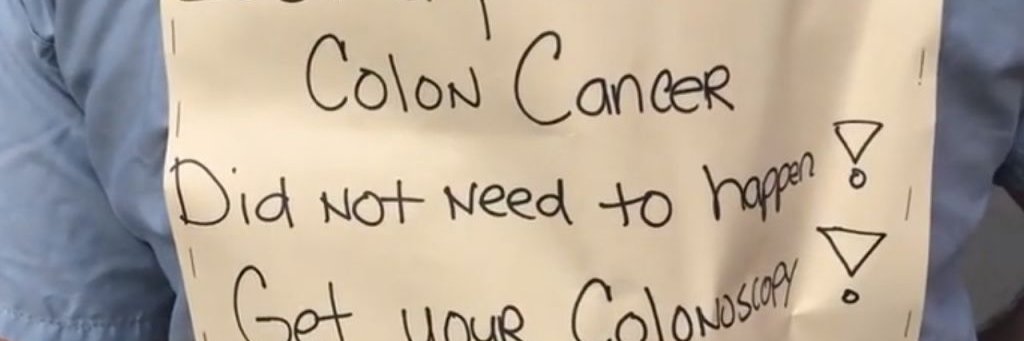 Colon Cancer
Did Not Need to happen!
Get your Colonoscopy!